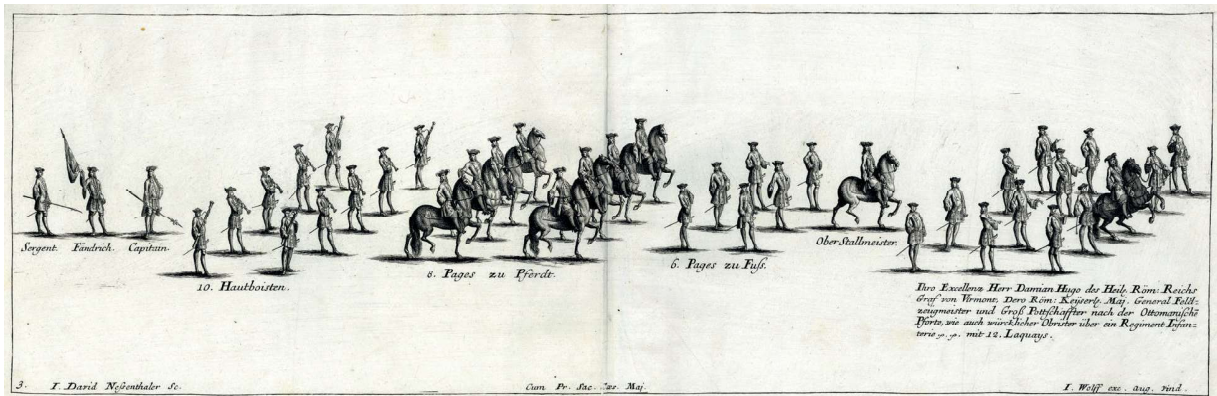 Sergent. Fändrich. Capitain.
10. Hautboisten.
8. Pages zu Pferdt.
6. Pages zu Fuss.
Ober Stallmeister.
Ihro Excellenz Herr Damian Hugo des Heilg. Röm: Reichs
Graf von Virmont, Dero Röm: Keyserlg. Maj. General Feltt-
zeugmeister und Groß Pottschaffter nach der Ottomanischē
Pforte, wie auch würcklicher Obrister über ein Regiment Infan-
terie p. p. mit 12. Laquays.
3. I. David Nessenthaler Sc.
Cum Pr. Sac. Cæs. Maj.
I. Wolff exc. Aug. Vind.